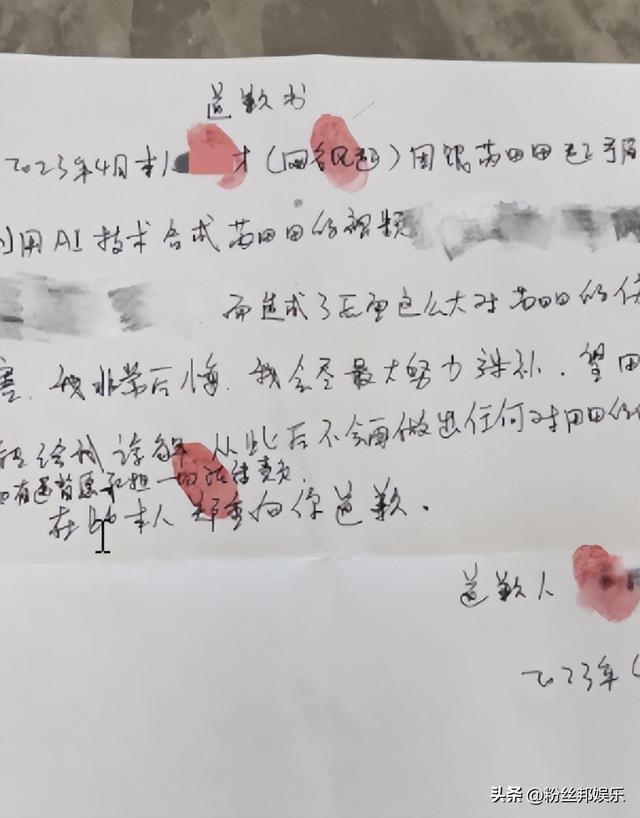 道歉书
2023年4月本人 才(网名 )因跟苗田田
利用AI技术合成苗田田的视频
而造成了后面这么大对苗田田的伤
害,我非常后悔,我会尽最大努力弥补,望田
能给我谅解 从此后不会再做出任何对田田的
如有违背愿承担一切法律责任
在此本人郑重向你道歉.
道歉人
2023年
头条 @粉丝邦娱乐